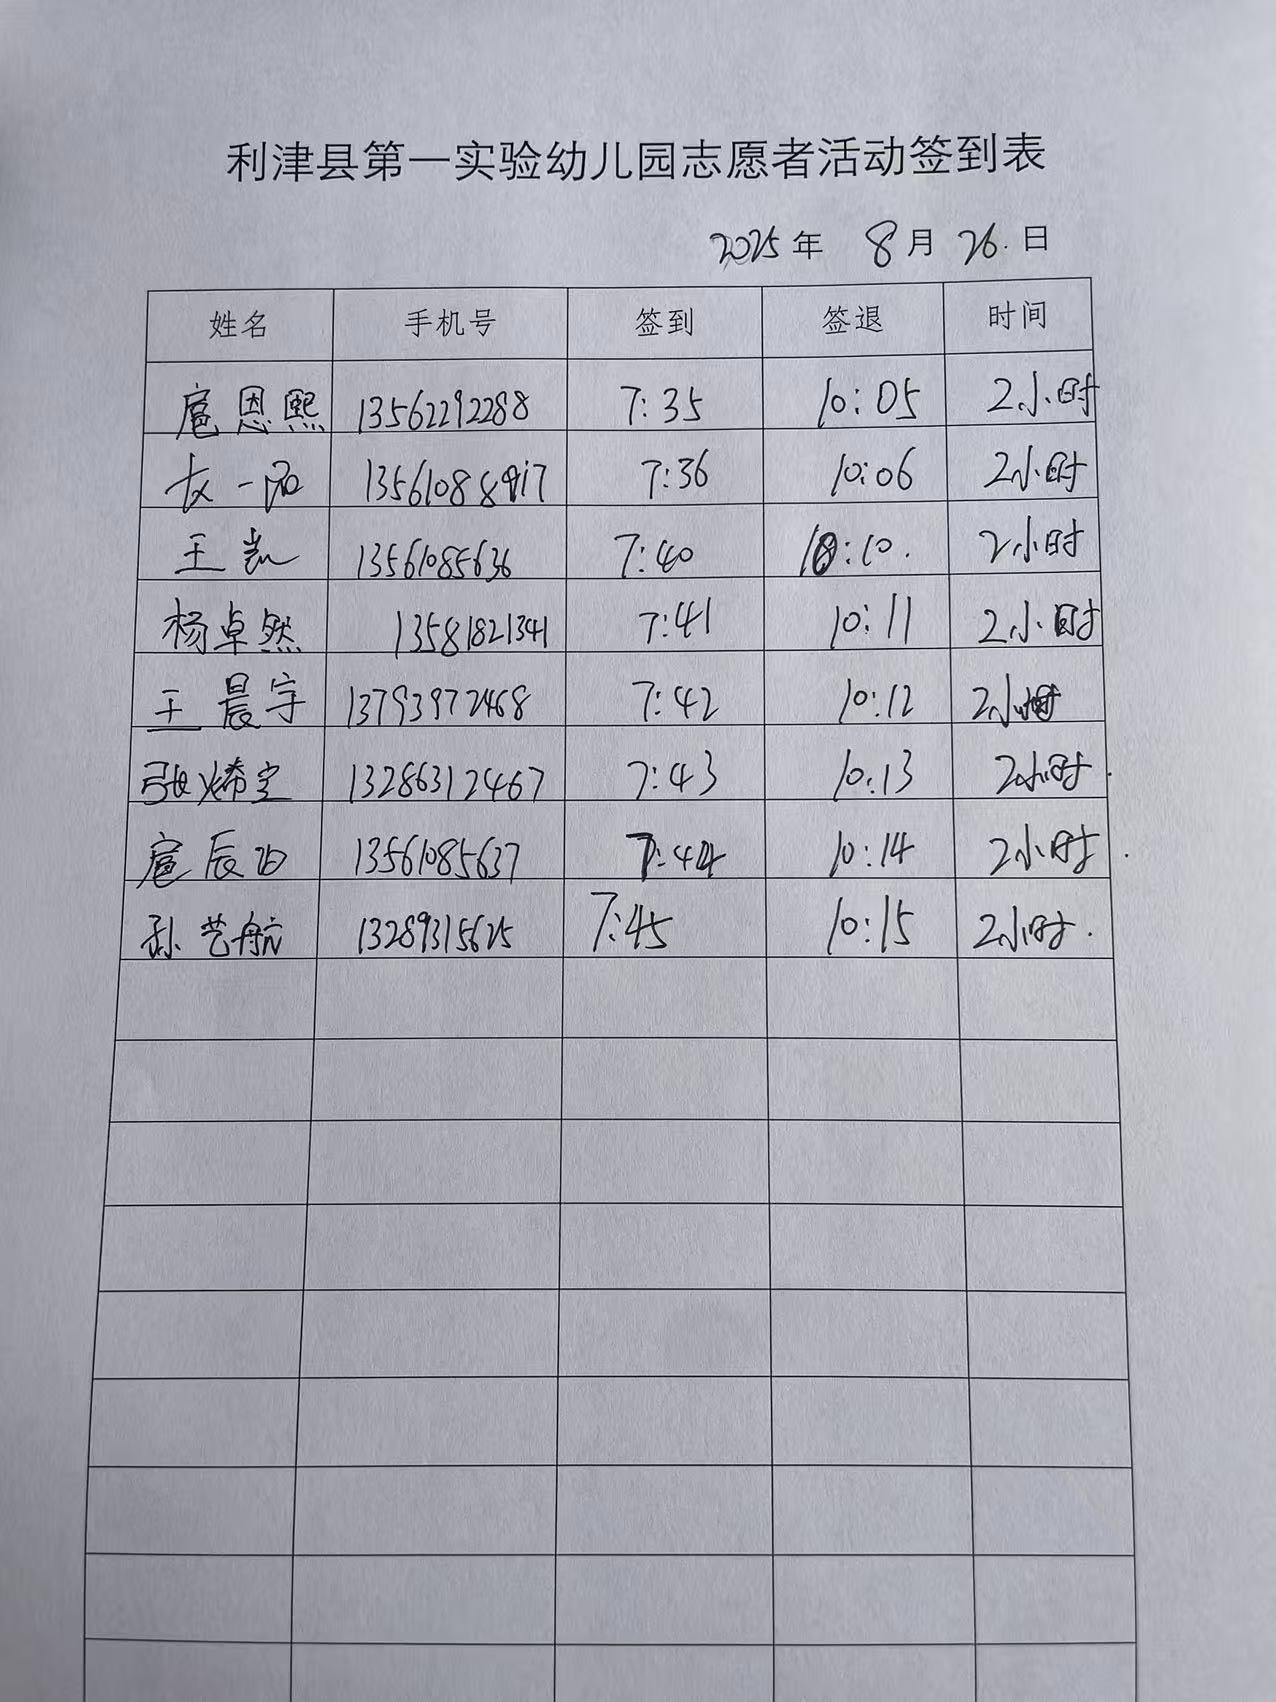 利津县第一实验幼儿园志愿者活动签到表
2025年 8月 26.日
姓名 手机号 签到 签退 时间
扈恩熙 13562292288 7:35 10:05 2小时
一 13561088917 7:36 10:06 2小时
王凯 13561085636 7:40 10:10. 2小时
杨卓然 13581821341 7:41 10:11 2小时
王晨宇 13793972468 7:42 10:12 2小时
张烯宝 13286312467 7:43 10:13 2小时.
扈辰 13561085637 7:44 10:14 2小时.
孙艺航 13289315625 7:45 10:15 2小时.